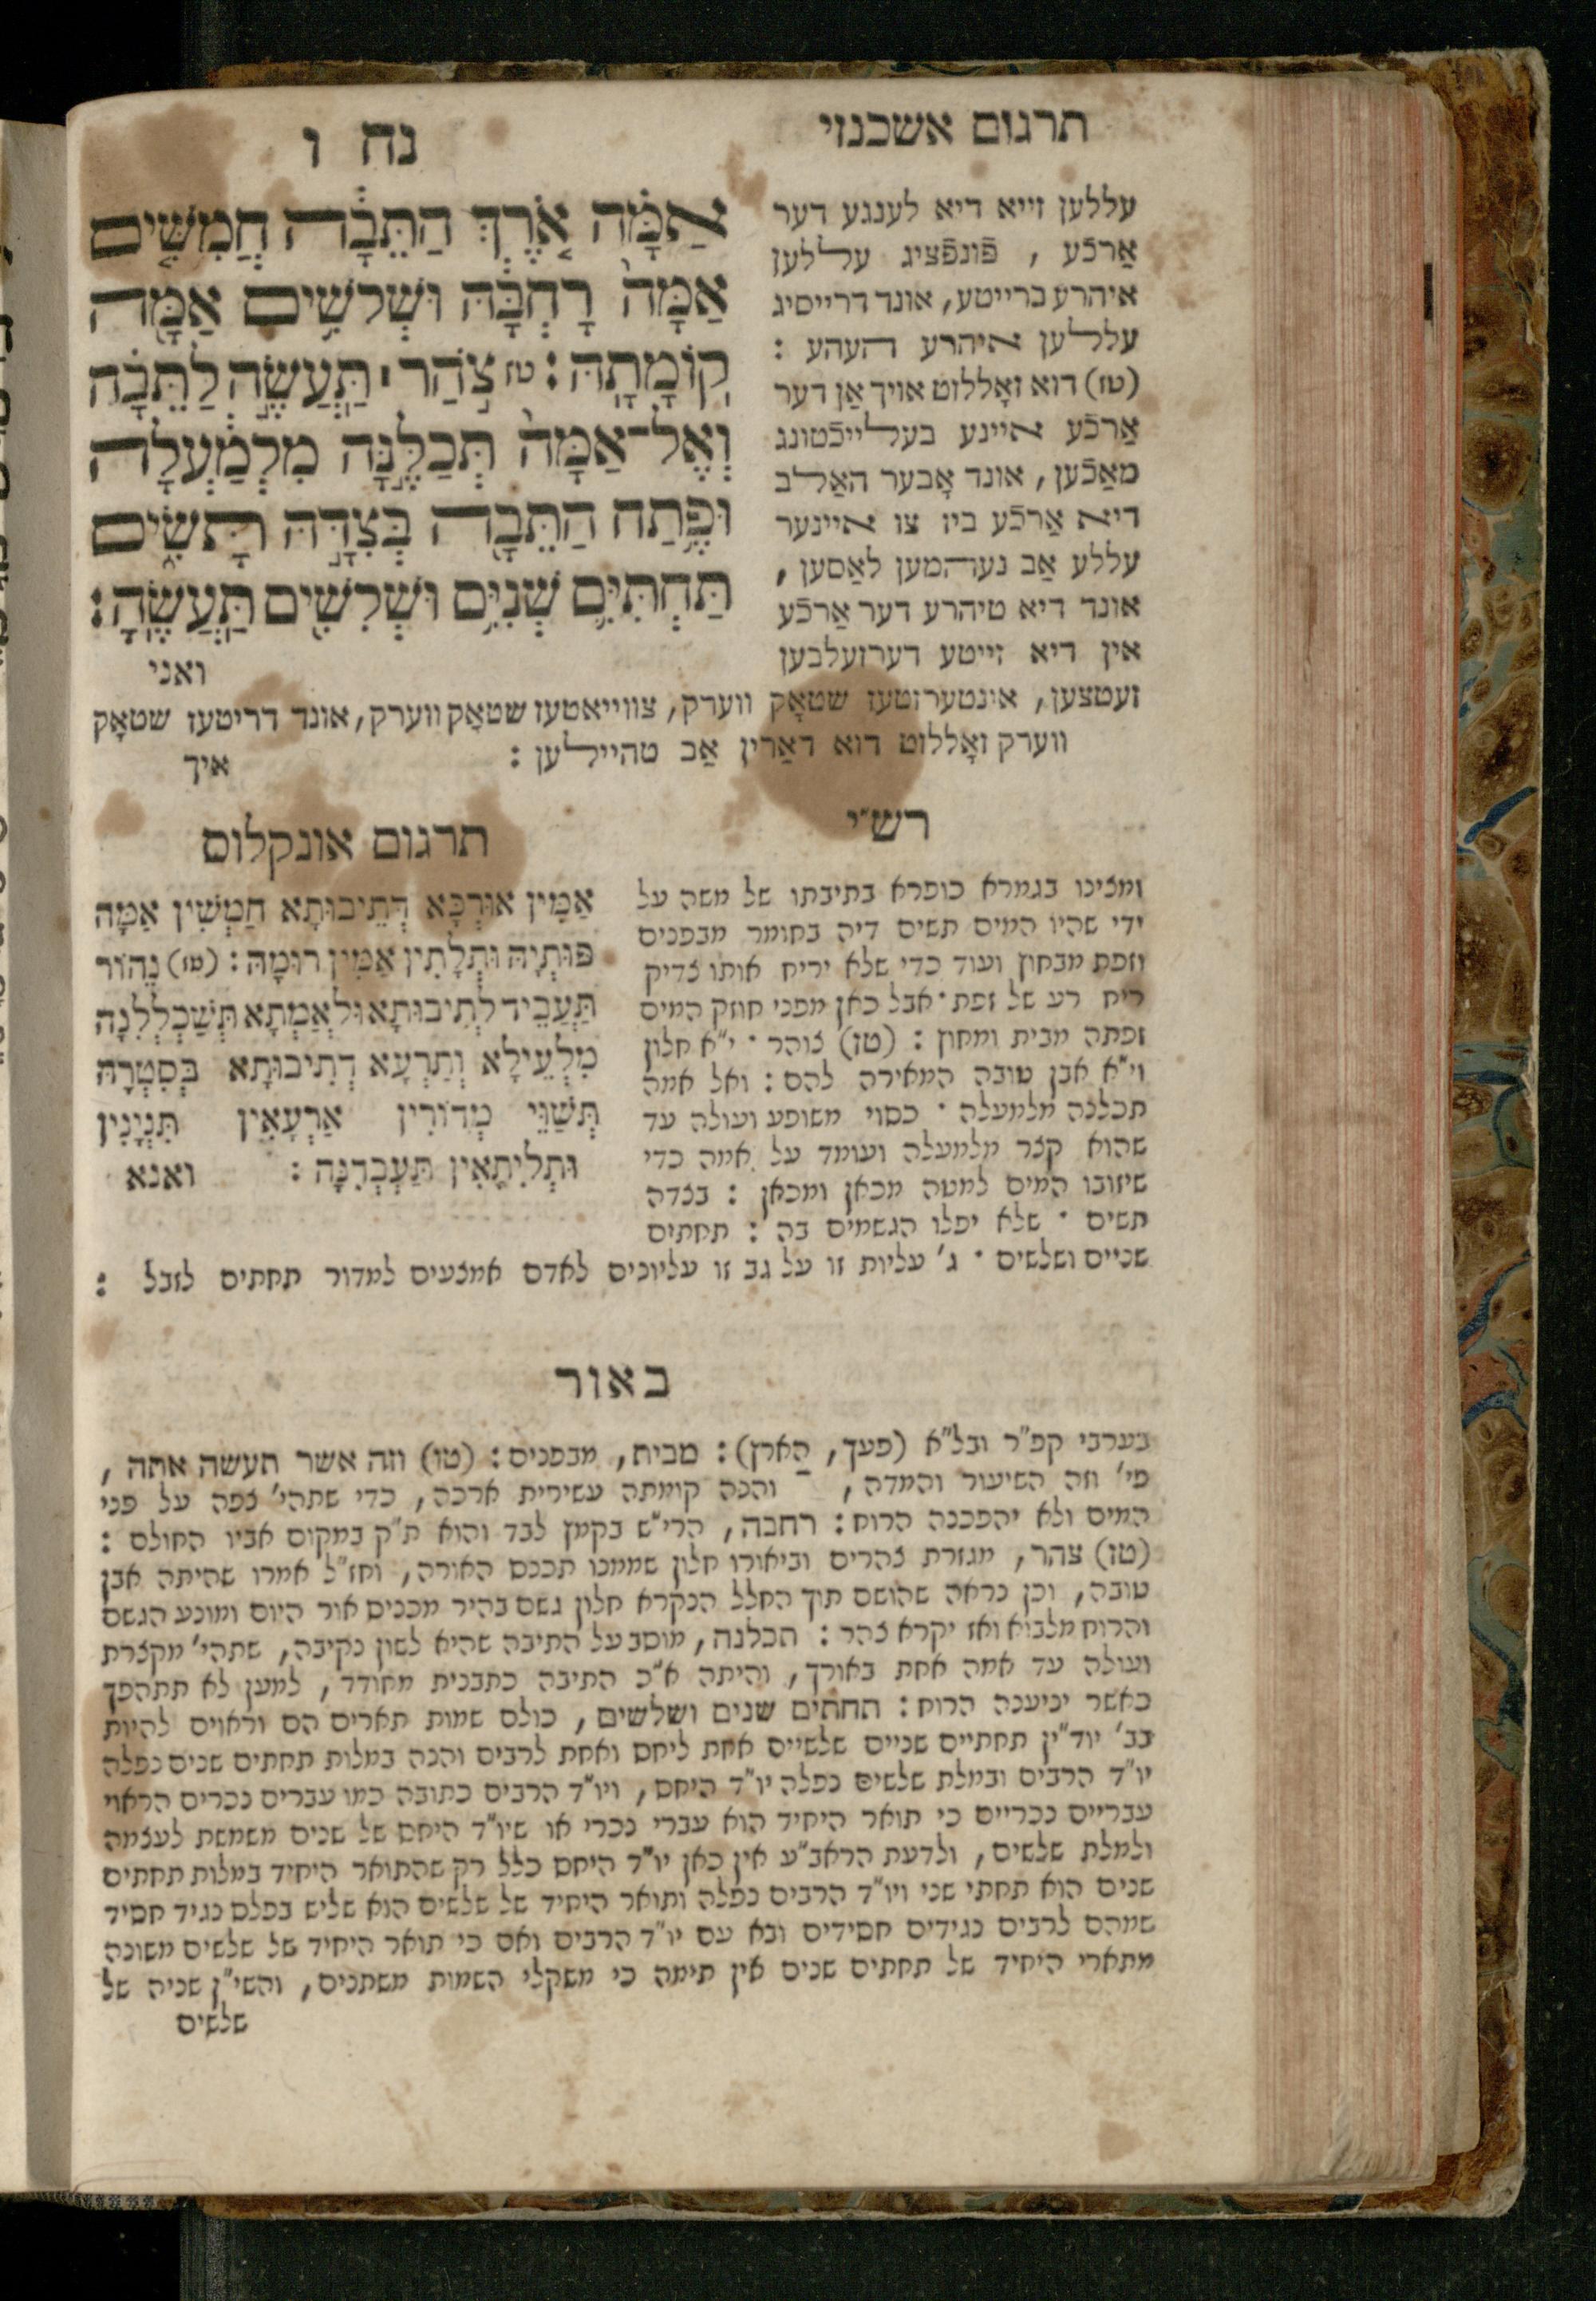 תרגום אשכנזי
נח ו
עללען זייא דיא לענגע דער
אַרכֿע , פֿונפֿציג עללען
איהרע ברייטע, אונד דרייסיג
עללען איהרע העהע :
(טז) דוא זאָללוט אויך אַן דער
אַרכֿע איינע בעלייכֿטונג
מאַכֿען, אונד אָבער האַלב
דיא אַרכֿע ביז צו איינער
עללע אַב נעהמען לאַסען ,
אונד דיא טיהרע דער אַרכֿע
אין דיא זייטע דערזעלבען
זעטצען, אונטערזטעז שטאָק ווערק, צווייאטעז שטאָק ווערק, אונד דריטעז שטאָק
ווערק זאָללוט דוא דאַרין אַב טהיילען :
איך
אַמָּ֗ה אֹ֚רֶךְ הַתֵּבָ֔ה חֲמִשִּׁ֤ים
אַמָּה֙ רָחְבָּ֔הּ וּשְׁלשִׁ֥ים אַמָּ֖ה
קֽוֹמָתָֽהּ : טז צֹ֣הַר ׀ תַּֽעֲשֶׂ֣ה לַתֵּבָ֗ה
וְאֶל־אַמָּה֙ תְּכַלֶּ֣נָּה מִלְמַ֔עְלָה
וּפֶ֥תַח הַתֵּבָ֖ה בְּצִדָּ֣הּ תָּשִׂ֑ים
תַּחְתִּיִּ֛ם שְׁנִיִּ֥ם וּשְׁלִשִׁ֖ים תַּֽעֲשֶֽׂהָ :
ואני
רש״י
ומצינו בגמרא כופרא בתיבתו של משה על
ידי שהיו המים תשים דיה בחומר מבפנים
וזפת מבחוץ ועוד כדי שלא יריח אותו צדיק
ריח רע של זפת · אבל כאן מפני חוזק המים
זפתה מבית ומחוץ : (טז) צוהר · י״א חלון
וי״א אבן טובה המאירה להם : ואל אמה
תכלנה מלמעלה · כסוי משופע ועולה עד
שהוא קצר מלמעלה ועומד על אמה כדי
שיזובו המים למטה מכאן ומכאן : בצדה
תשים · שלא יפלו הגשמים בה : תחתים
שניים ושלשים · ג׳ עליות זו על גב זו עליונים לאדם אמצעים למדור תחתים לזבל :
תרגום אונקלוס
אַמִּין אוּרְכָּא דְּתֵיבוּתָא חַמְשִׁין אַמָּה
פּוּתְיָהּ וּתְלָתִין אַמִּין רוּמָהּ : (טז) נֵהוֹר
תַּעֲבֵיד לְתֵיבוּתָא וּלְאַמְתָא תְּשַׁכְלְלִנָהּ
מִלְעֵילָא וְתַרְעָא דְתֵיבוּתָא בְּסִטְרָהּ
תְּשַׁוֵּי מְדוֹרִין אַרְעָאִין תִּנְיָנִין
וּתְלִיתָאִין תַּעְבְּדִנָּהּ : ואנא
באור
בערבי קפ״ר ובל״א (פעך, הארץ) : מבית, מבפנים : (טו) וזה אשר תעשה אתה ,
פי׳ וזה השיעור והמדה, והנה קומתה עשירית ארכה, כדי שתהי׳ צפה על פני
המים ולא יהפכנה הרוח : רחבה, הרי״ש בקמץ לבד והוא ת״ק במקום אביו החולם :
(טז) צהר, מגזרת צהרים וביאורו חלון שממנו תכנס האורה, וחז״ל אמרו שהיתה אבן
טובה, וכן נראה שהושם תוך החלל הנקרא חלון גשם בהיר מכניס אור היום ומונע הגשם
והרוח מלבוא ואז יקרא צהר : תכלנה, מוסב על התיבה שהיא לשון נקיבה, שתהי׳ מקצרת
ועולה עד אמה אחת באורך, והיתה א״כ התיבה כתבנית מחודד, למען לא תתהפך
כאשר יניענה הרוח : תחתים שנים ושלשים, כולם שמות תארים הם וראוים להיות
בב׳ יוד״ין תחתיים שניים שלשיים אחת ליחס ואחת לרבים והנה במלות תחתים שנים נפלה
יו״ד הרבים ובמלת שלשים נפלה יו״ד היחס, ויו״ד הרבים כתובה כמו עברים נכרים הראוי
עבריים נכריים כי תואר היחיד הוא עברי נכרי או שיו״ד היחס של שנים משמשת לעצמה
ולמלת שלשים, ולדעת הראב״ע אין כאן יו״ד היחס כלל רק שהתואר היחיד במלות תחתים
שנים הוא תחתי שני ויו״ד הרבים נפלה ותואר היחיד של שלשים הוא שליש בפלס נגיד חסיד
שמהם לרבים נגידים חסידים ובא עם יו״ד הרבים ואם כי תואר היחיד של שלשים משונה
מתארי היחיד של תחתים שנים אין תימה כי משקלי השמות משתנים, והשי״ן שניה של
שלשים